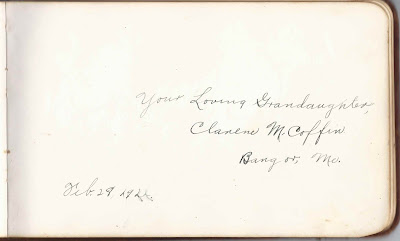 Your Loving Grandaughter,
Clarene M. Coffin
Bangor, Me.
Feb. 29 1924.